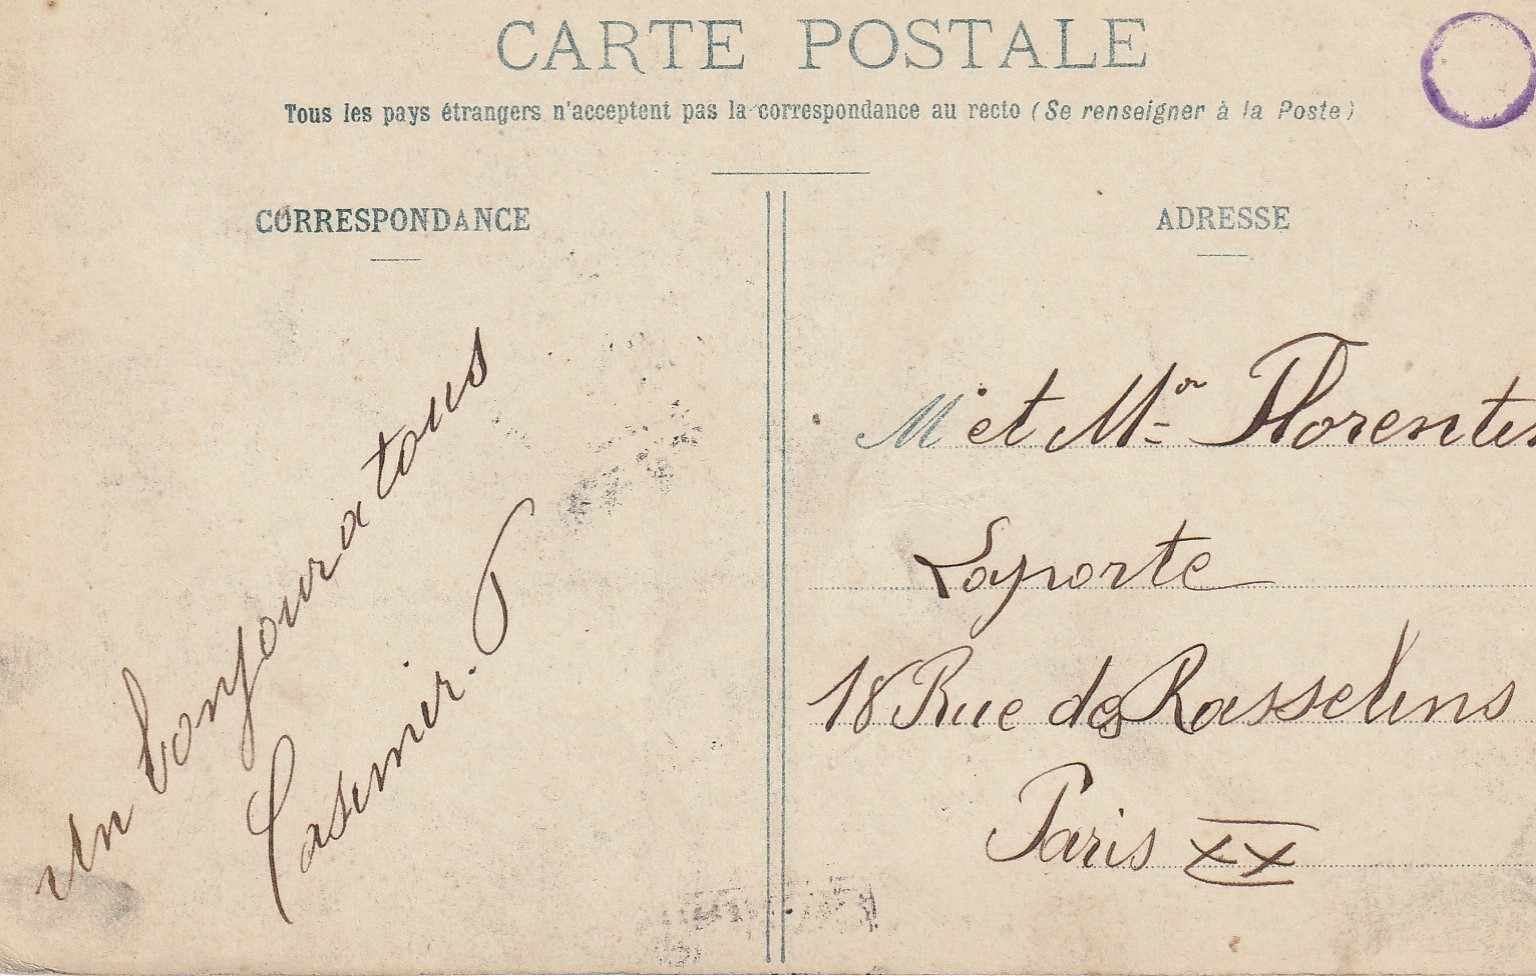 CARTE POSTALE
Tous les pays étrangers n'acceptent pas la correspondance au recto (Se renseigner à la Poste)
CORRESPONDANCE
un bonjour a tous
Casimir. P
ADRESSE
M et Mr Florentin
Laporte
18 Rue des Rasselins
Paris XX